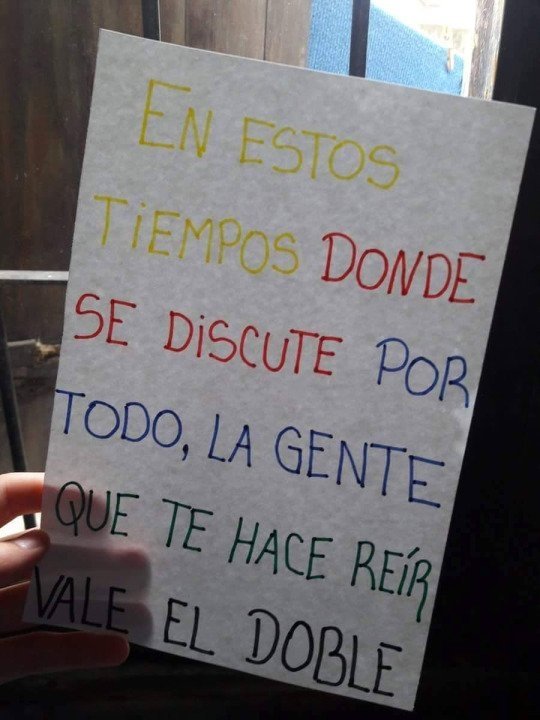 EN ESTOS
TiEMPOS DONDE
SE DiSCUTE POR
TODO, LA GENTE
QUE TE HACE REÍR
VALE EL DOBLE